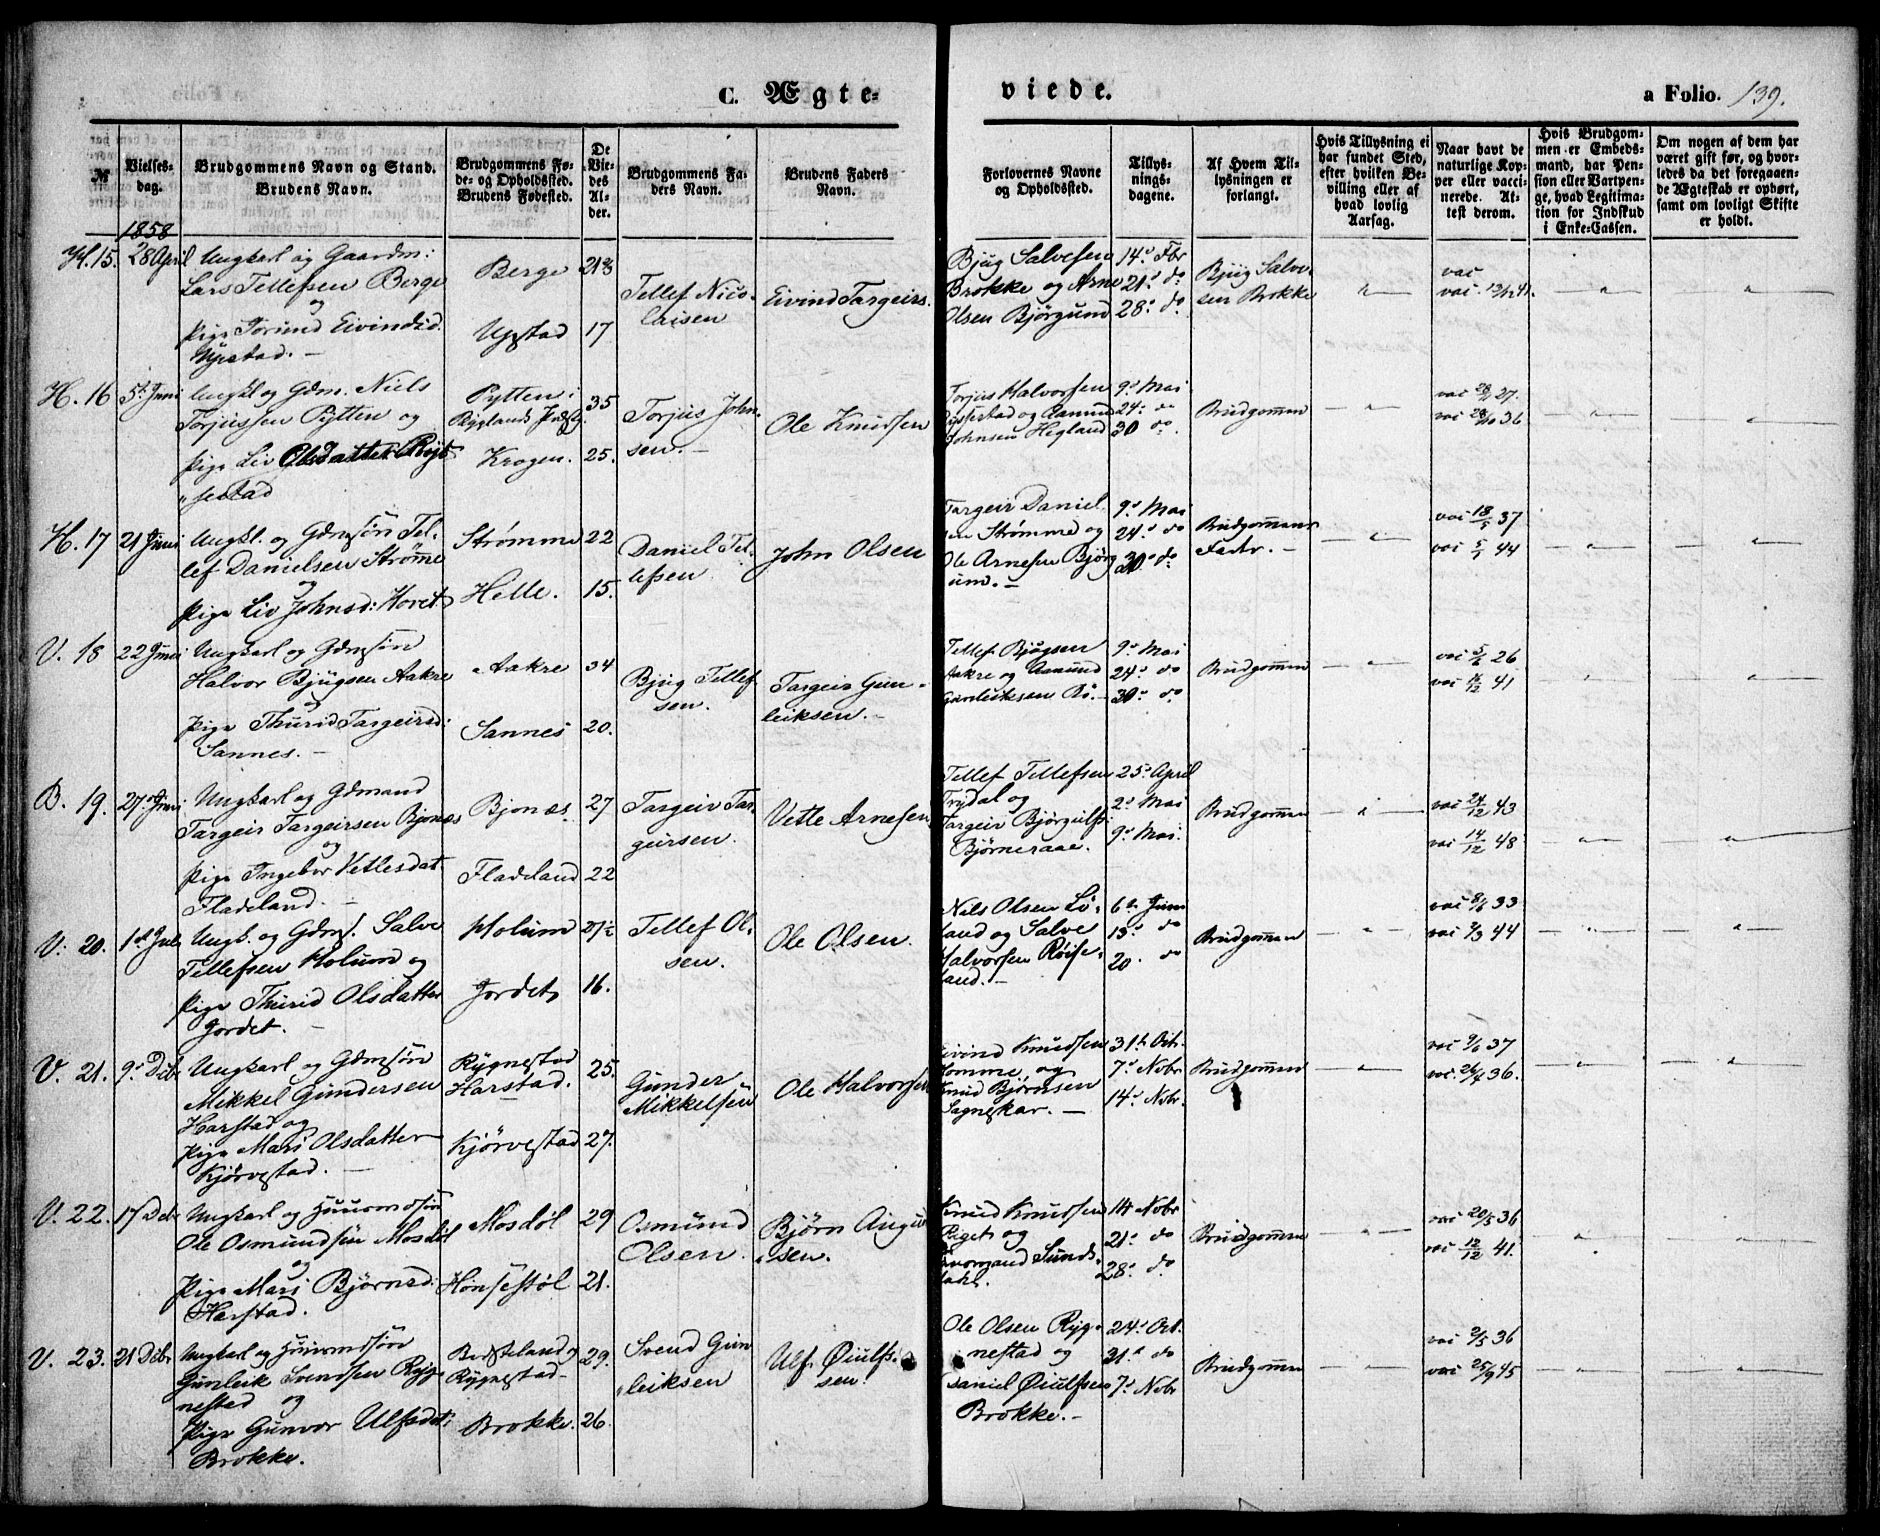 C. Ægte-
viede.
a Folio. 139.
№
Vielses-
dag.
Brudgommens Navn og Stand.
Brudens Navn.
Brudgommens Fø-
de- og Opholdssted.
Brudens Fødested.
De
Vie-
des
Al-
der.
Brudgommens Fa-
ders Navn.
Brudens Faders
Navn.
Forlovernes Navne
og Opholdssted.
Tillys-
nings-
dagene.
Af Hvem Til-
lysningen er
forlangt.
Hvis Tillysning ei
har fundet Sted,
efter hvilken Be-
villing eller af
hvad lovlig
Aarsag.
Naar havt de
naturlige Kop-
per eller vacci-
nerede. At-
test derom.
Hvis Brudgom-
men er Embeds-
mand, har Pen-
sion eller Vartpen-
ge, hvad Legitima-
tion for Indskud
i Enke-Cassen.
Om nogen af dem har
været gift før, og hvor-
ledes da det foregaaen-
de Ægteskab er ophørt,
samt om lovligt Skifte
er holdt.
1858
H. 15. 28 April
Ungkarl og Gaardm:
Lars Tellefsen Berge
og
Pige Torund Eivindsd.
Upstad. –
Berge
Upstad
17
Tellef Nico-
laisen
Eivind Targeirs.
Bjug Salvesen
Brokke og Arne
Olsen Bjørgum
14d Fbr
21d do
28d do
Bjug Salve-
sen Brokke
vac
H. 16 5t Juni
Ungkl og Gdm. Niels
Torjussen Pytten og
Pige Liv Olsdatter Ryst
sestad
Pytten i
Byglands
Krogen.
35
25.
Torjus John-
sen. –
Ole Knudsen
Torjus Halvorsen
Rystestad og Aamund
Johnsen Hegland
9d Mai
24d do
30 do
Brudgommen
vac 27.
vac 28/10 36
H. 17 21 Juni
Ungkl. og Gdmsøn Tel-
lef Danielsen Strømme
og
Pige Liv Johnsd: Hovet
Strømme
Helle.
22
15.
Daniel Tel-
lefsen
John Olsen
Targeir Daniel
sen Strømme og
Ole Arnesen Bjørg
um. –
9d Mai
24d do
30 do
Brudgommens
Fader. –
vac 18/5 37
vac 5/7 44
V. 18 22 Juni
Ungkarl og Gdmsøn
Halvor Bjugsen Aakre
og
Pige Thurid Targeirsd:
Sannes. –
Aakre
Sannes
34
20.
Bjug Tellef
sen.
Targeir Gun-
leiksen. –
Tellef Bjugsen
Aakre og Aamund
Gunleiksen Bö. –
9d Mai
24d do
30d do
Brudgommen
vac 5/6 26
vac 41
B. 19. 27d Juni
Ungkarl og Gdmand
Targeir Targeirsen Bjønæs
og
Pige Ingebor Vetlesdat
Fladeland. –
Bjonæs
Fladeland
27
22
Targeir Tar-
geirsen.
Vetle Arnesen
Tellef Tellefsen
Trydal og
Targeir Bjørgulfs:
Bjørneraae.
25d April
2d Mai
9d Mai.
Brudgommen
vac 24/12 43
vac 14/12 48
V. 20. 1st Juli
Ungk. og Gdms. Salve
Tellefsen Holum og
Pige Thurid Olsdatter
Jordet. –
Holum
Jordet
16.
Tellef Ol-
sen.
Ole Olsen.
Niels Olsen Lö-
land og Salve
Halvorsen Røise-
land. –
6te Juni
13d do
20. do
Brudgommen
vac 33
vac 44
V. 21. 9d Dcbr
Ungkarl og Gdmsøn
Mikkel Gundersen
Harstad og
Pige Mari Olsdatter
Kjørvestad. –
Rygnestad
Harstad.
Kjørvestad
25.
27.
Gunder
Mikkelsen
Ole Halvorsen
Eivind Knudsen
Homme, og
Knud Bjørnsen
Sagneskar. –
31te Octr.
7d Nobr
14d Nobr.
Brudgommen
vac 9/6 37
vac 26/7 36.
V. 22. 17 Debr
Ungkarl og Huusmdsøn
Ole Osmundsen Mosdøl
og
Pige Mari Bjørnsd:
Harstad.
Mosdøl
Hønsestøl
29
21.
Osmund
Olsen.
Bjørn Augu
sen.
Knud Knudsen
Riget og
Sunds-
dahl.
14 Nobr
21d do
28d do
Brudgommen
vac 20/5 36
vac 12/12 41.
V. 23. 21 Debr
Ungkarl og Huusmdsøn
Gunleik Svendsen Ryg-
nestad og
Pige Gunvor Ulfsdat:
Brokke.
Rygnestad-
Brokke.
29.
26.
Svend Gun
leiksen
Ulf Øiulfs-
sen.
Ole Olsen Ryg-
nestad og
Daniel Øiulfsen
Brokke. –
24d Oct.
31d do
7d Nobr
Brudgommen
vac 36
vac 25/9 45